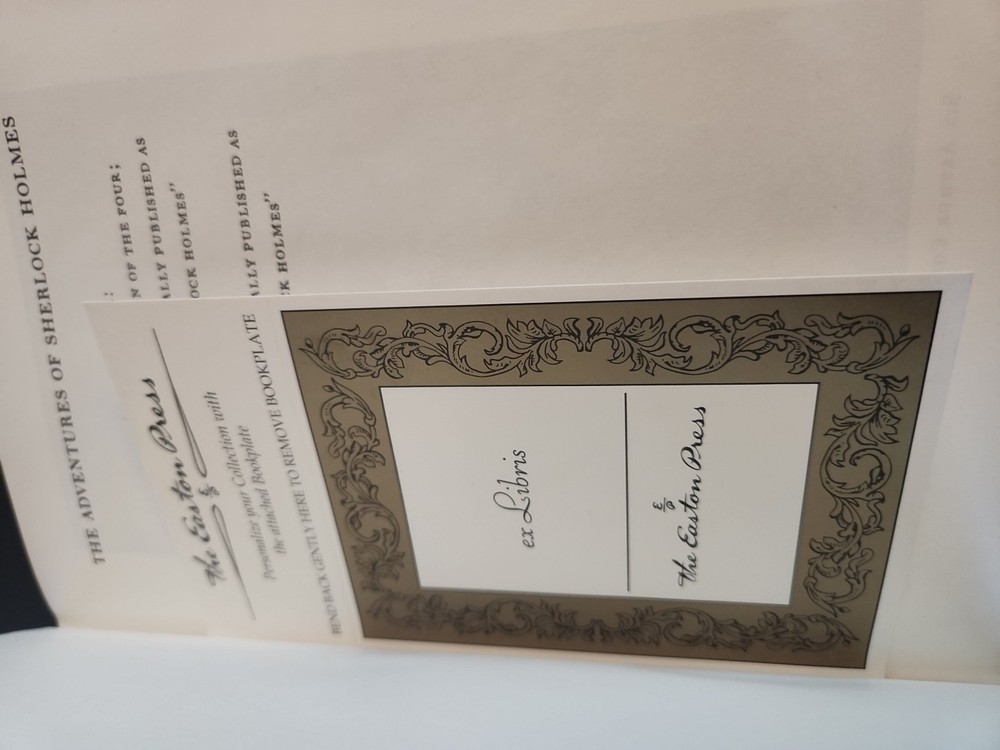 THE ADVENTURES OF SHERLOCK HOLMES
:
N OF THE FOUR;
LLY PUBLISHED AS
OCK HOLMES”
ALLY PUBLISHED AS
CK HOLMES”
The Easton Press
Personalize your Collection with
the attached Bookplate
BEND BACK GENTLY HERE TO REMOVE BOOKPLATE
ex Libris
The Easton Press